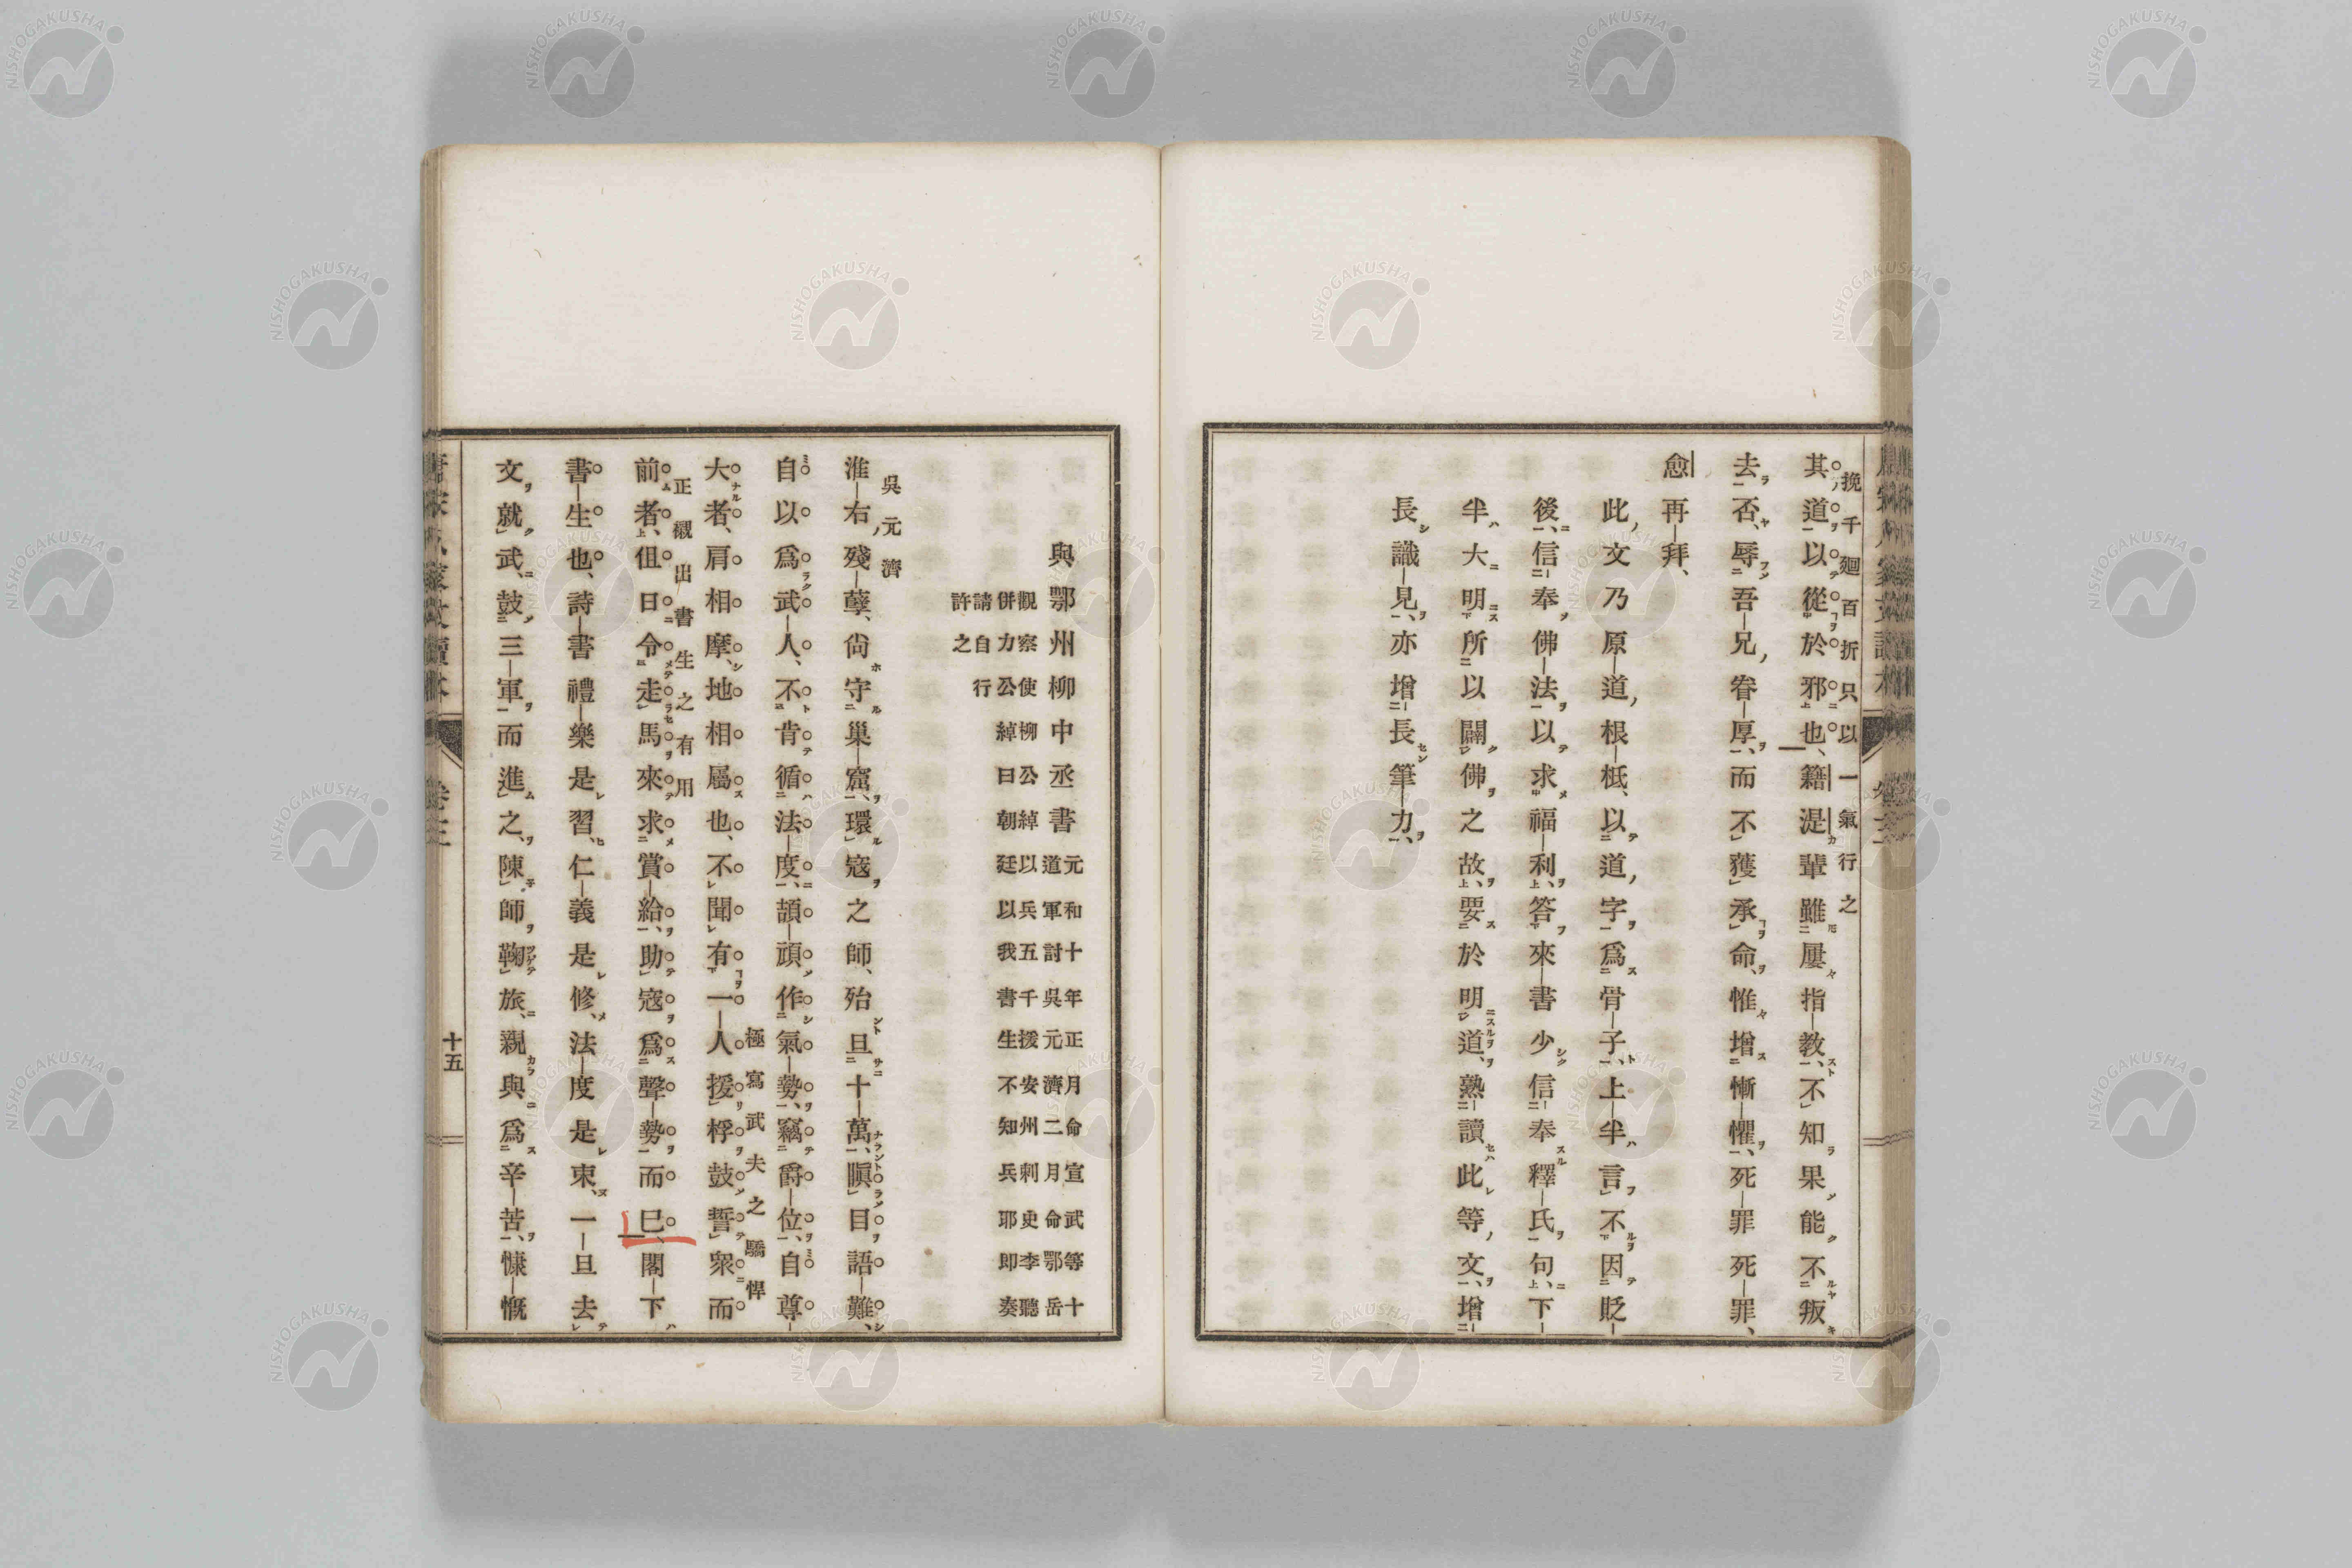 挽千廻百折只以一氣行之
其道以從於邪也、籍湜輩雖屢指教、不知果能不叛
去否、辱吾兄眷厚、而不獲承命、惟增慚懼、死罪死罪、
愈再拜、
此文乃原道根柢、以道字爲骨子、上半言不因貶
後、信奉佛法以求福利、答來書少信奉釋氏句、下
半大明所以闢佛之故、要於明道、熟讀此等文、增
長識見、亦增長筆力、
與鄂州柳中丞書
元和十年正月命宣武等十
道軍討吳元濟二月命鄂岳
觀察使柳公綽以兵五千援安州刺史李聽
併力公綽曰朝廷以我書生不知兵耶即奏
請自行
許之
吳元濟
淮右殘孽、尙守巢窟、環寇之師、殆且十萬、瞋目語難、
自以爲武人、不肯循法度、頡頏作氣勢、竊爵位、自尊
極寫武夫之驕悍
大者、肩相摩、地相屬也、不聞有一人援桴鼓誓衆而
正襯出書生之有用
前者、但日令走馬來求賞給、助寇爲聲勢而已、閣下
書生也、詩書禮樂是習、仁義是修、法度是束、一旦去
文就武、鼓三軍而進之、陳師鞠旅、親與爲辛苦、慷慨
十五
NISHOGAKUSHA